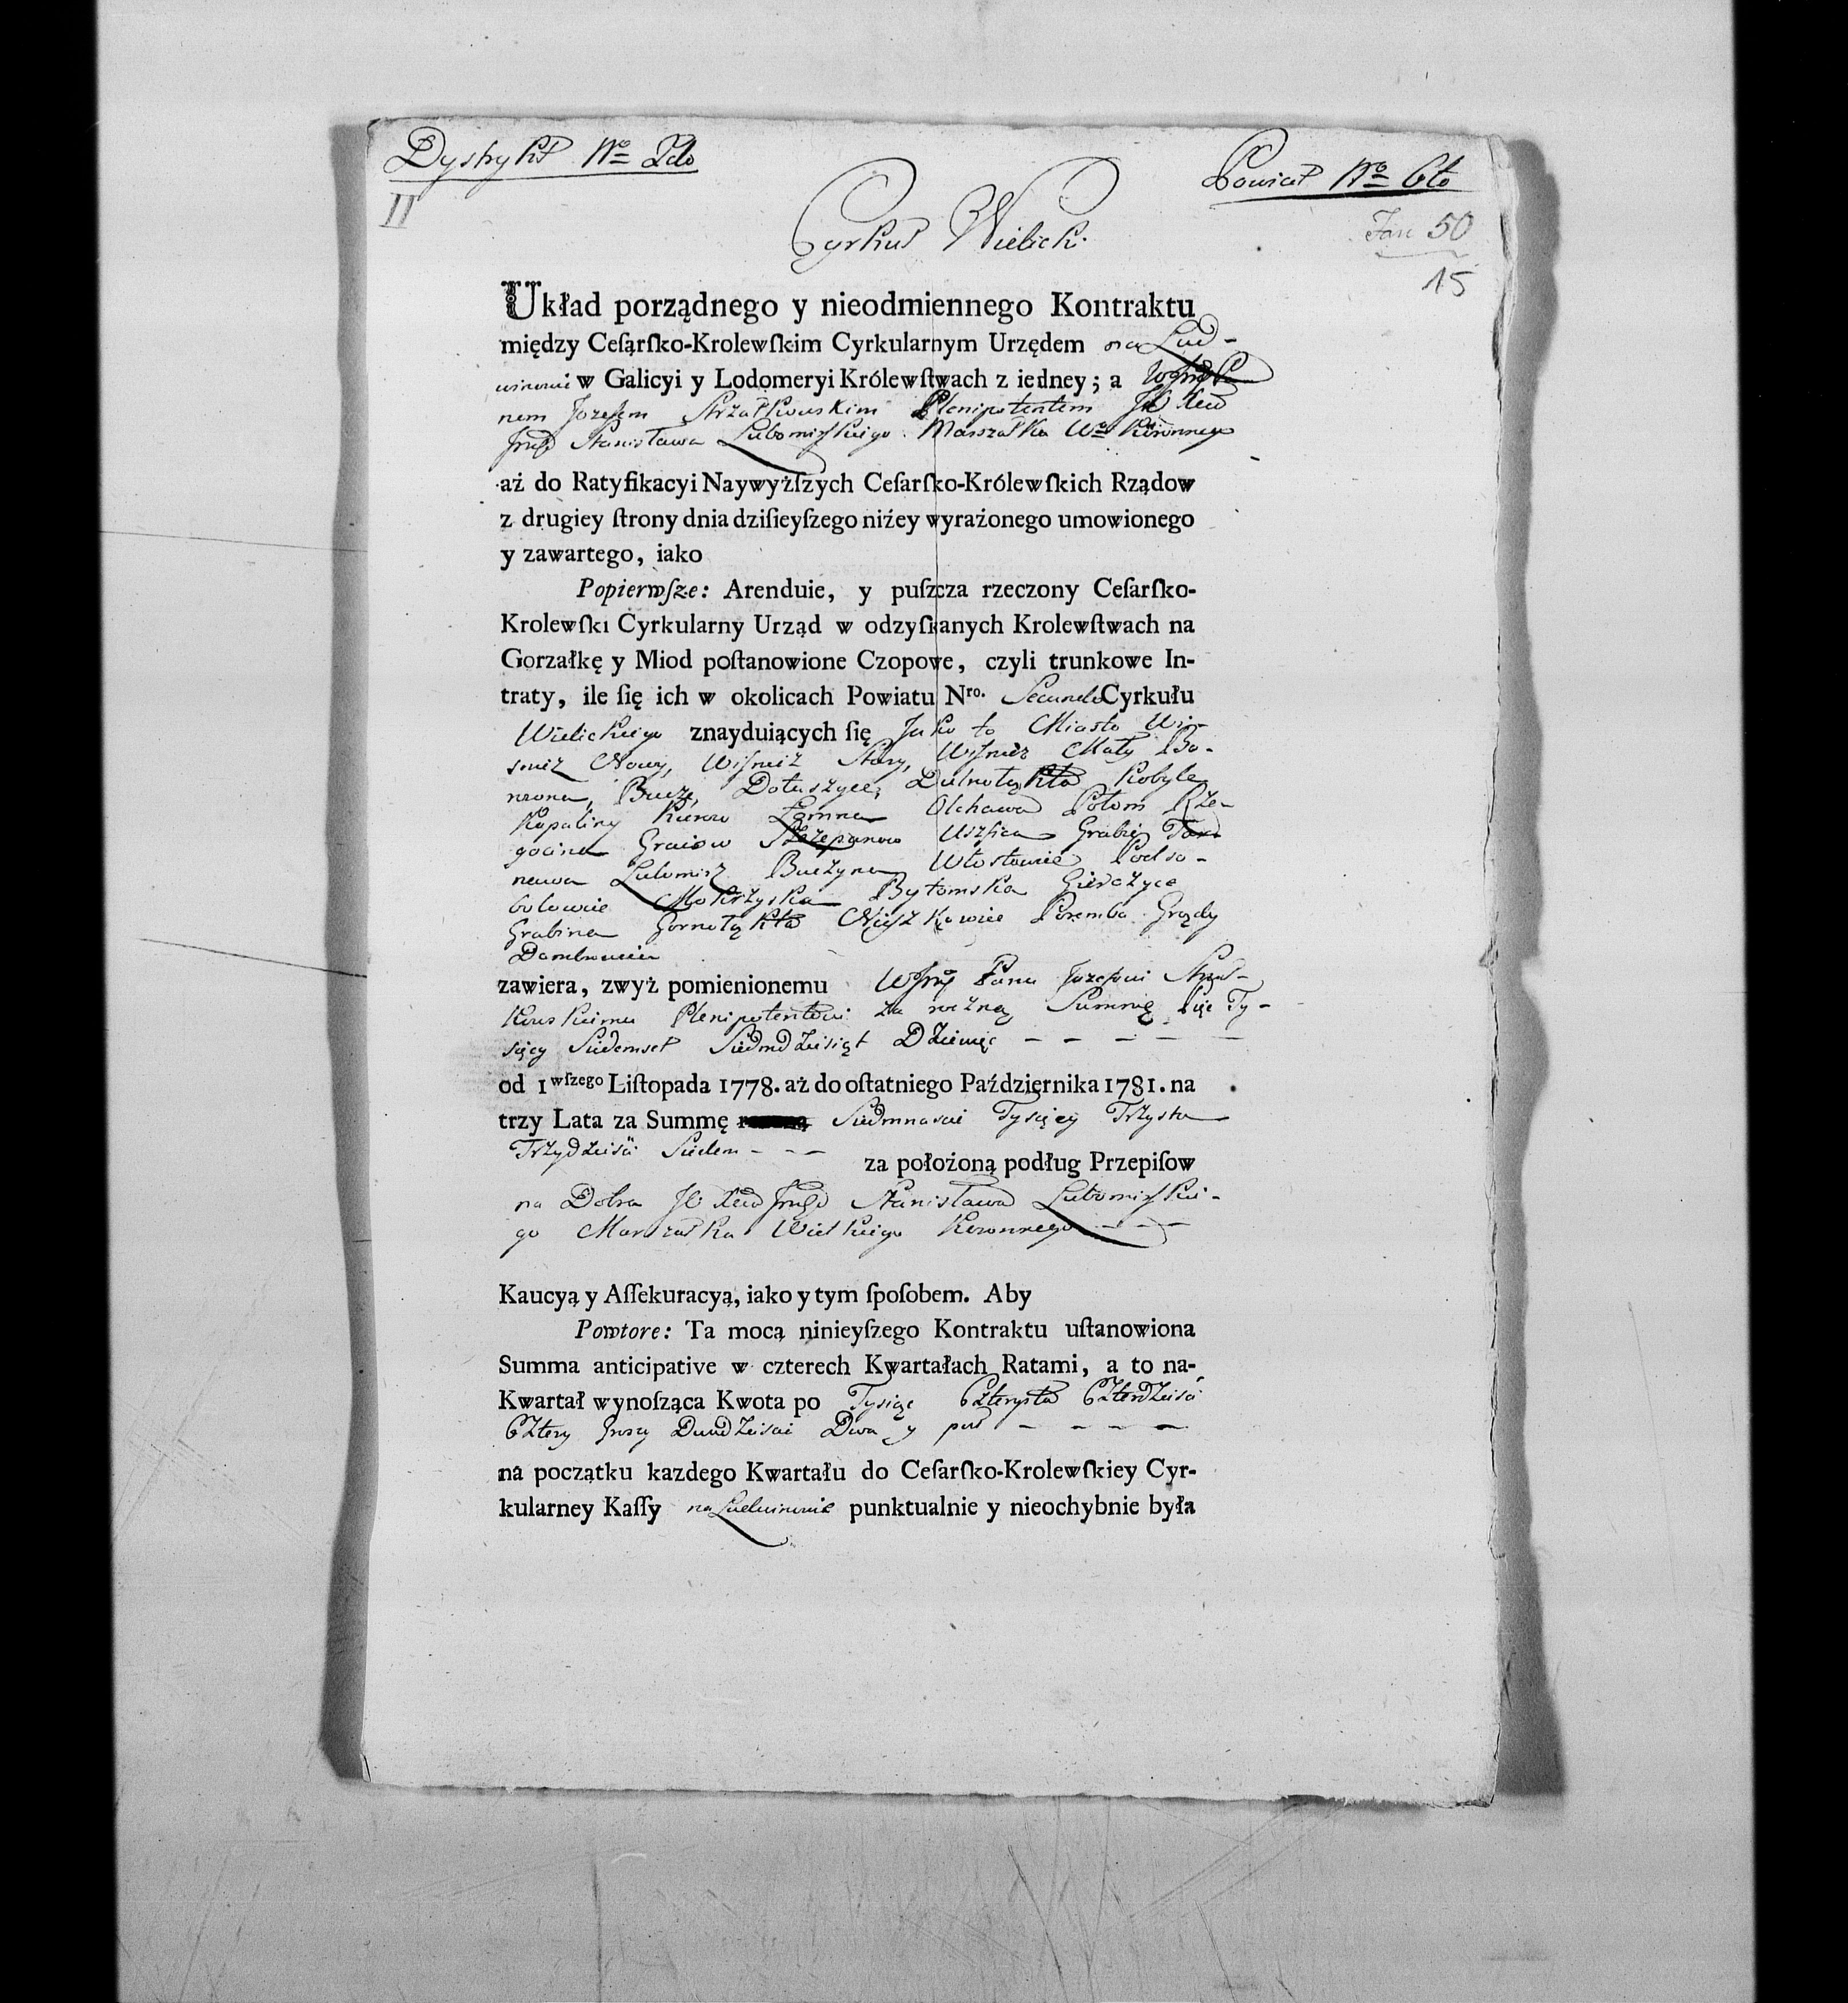 Dystrykt Nro 2do
Powiat Nro 6to
II
Cyrkuł Wielicki
Fasc 50
15
Układ porządnego y nieodmiennego Kontraktu
między Ceſąrſko-Krolewſkim Cyrkularnym Urzędem na Lud-
winowie w Galicyi y Lodomeryi Królewſtwach z iedney; a
nem Jozefem Strzałkowskim Plenipotentem
Stanisława Lubomirſkiego Marszałka Wo Koronnego
aż do Ratyfikacyi Naywyżſzych Ceſarſko-Królewſkich Rządow
z drugiey ſtrony dnia dziſieyſzego niżey wyrażonego umowionego
y zawartego, iako
Popierwſze: Arenduie, y puſzcza rzeczony Ceſarſko-
Krolewſki Cyrkularny Urząd w odzyſkanych Krolewſtwach na
Gorzałkę y Miod poſtanowione Czopowe, czyli trunkowe In-
traty, ile ſię ich w okolicach Powiatu Nro. Secundo Cyrkułu
Wielickiego znayduiących ſię Jako to Miasto Wi-
snicz Nowy, Wiſnicz Stary, Wiſnicz Mały Bo-
Bucze, Dołuszyce, Dolnołąkta Kobyle
Kopaliny Kurow Łomna Olchawa Połom Rze-
gocina Graiow Szczepanow Uszſica Grabie Tar-
nawa Lubomirz Buczyna Włostowice Podso-
bolowie Mokrzyska Bytomska Gierczyce
Grabina Gornołąkta Nieszkowice Poremba Grądy
Dombrowica
zawiera, zwyż pomienionemu Wſmu Panu Jozefowi Strzał-
kowskiemu Plenipotentowi za roczną Summę Pięć Ty-
sięcy Siedemset Siedmdziesiąt Dziewięć - - - - -
od 1wſzego Liſtopada 1778. aż do oſtatniego Paździęrnika 1781. na
trzy Lata za Summę Siedmnascie Tysięcy Trzysta
Trzydziesci Siedem - - - za położoną podług Przepiſow
na Dobra Stanisława Lubomirſkie-
go Marszałka Wielkiego Koronnego - - -
Kaucyą y Aſſekuracyą, iako y tym ſpoſobem. Aby
Powtore: Ta mocą ninieyſzego Kontraktu uſtanowiona
Summa anticipative w czterech Kwartałach Ratami, a to na-
Kwartał wynoſząca Kwota po Tysiąc Czterysta Czterdziesci
Cztery Groszy Dwadziescie Dwa y puł - - - -
na początku kazdego Kwartału do Ceſarſko-Krolewſkiey Cyr-
kularney Kaſſy na Ludwinowie punktualnie y nieochybnie była